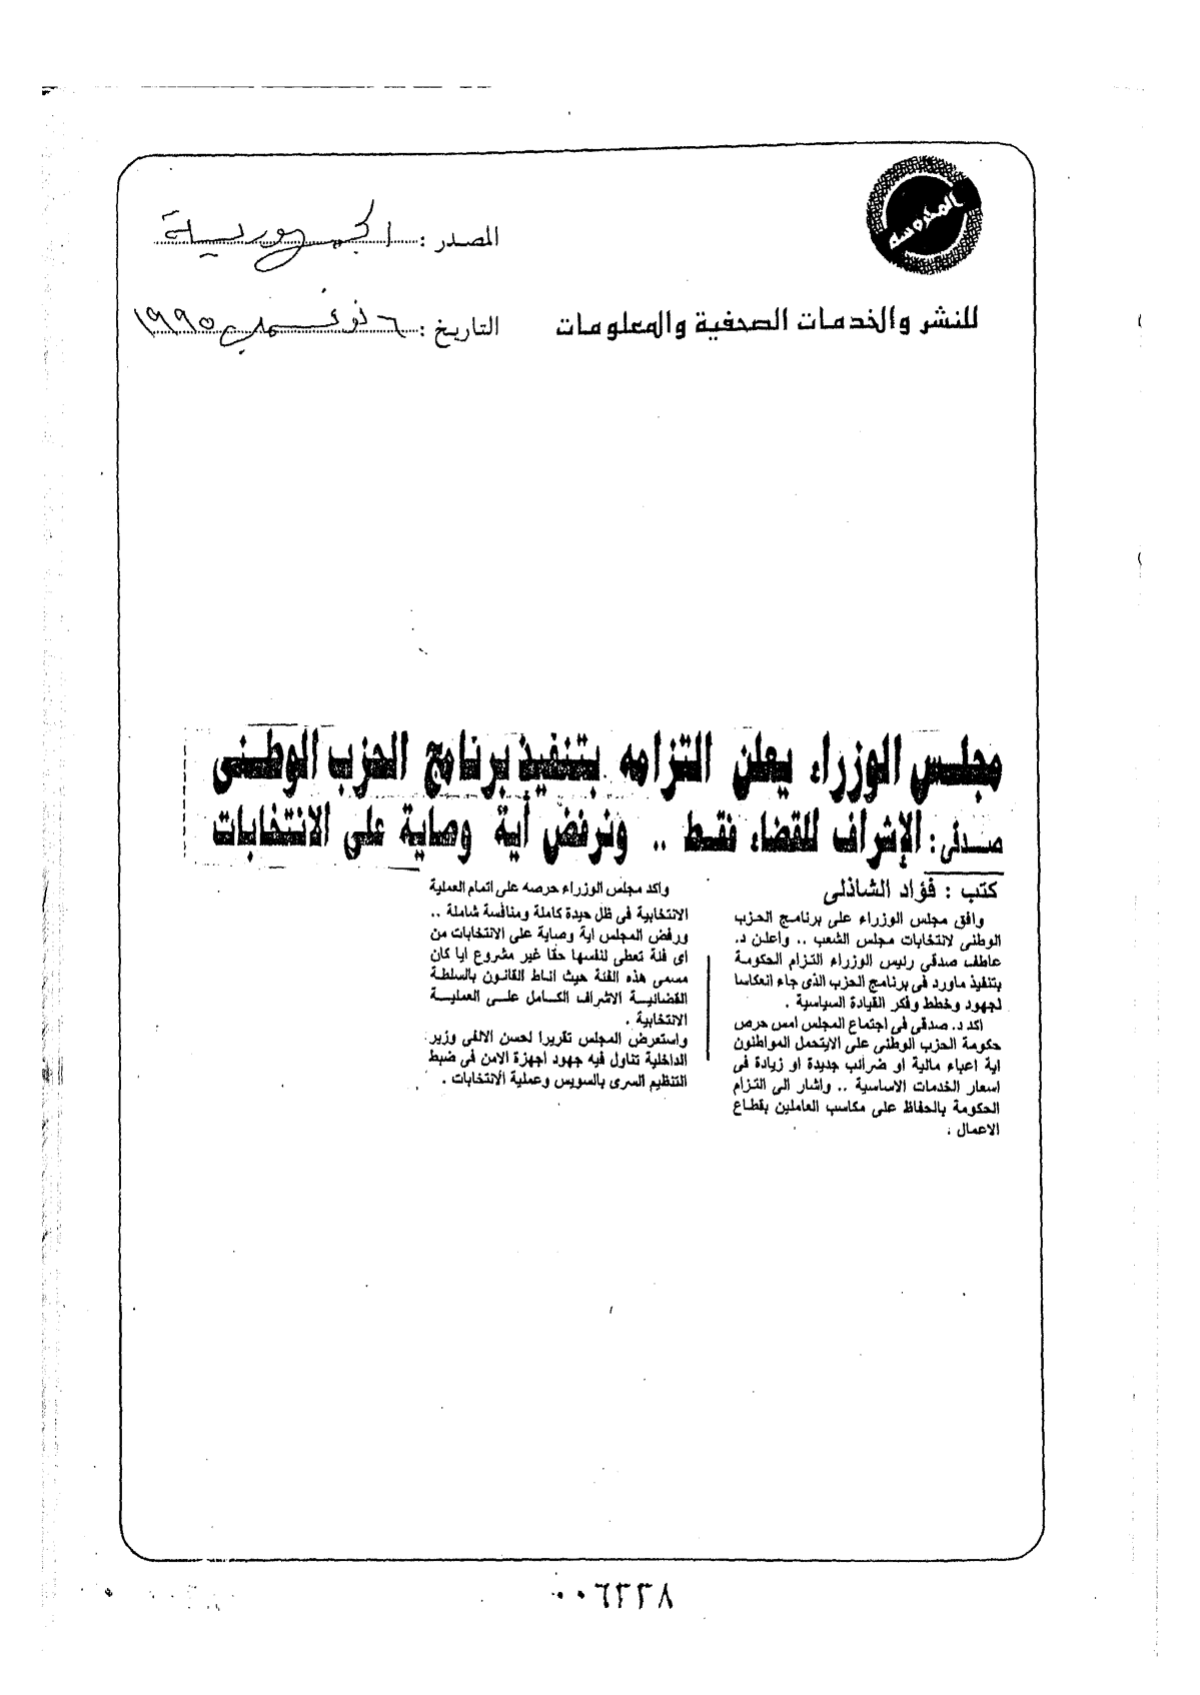 المحروسة
المصدر : الجمهورية
للنشر والخدمات الصحفية والمعلومات
التاريخ : ٦ نوفمبر ١٩٩٥
مجلس الوزراء يعلن التزامه بتنفيذ برنامج الحزب الوطنى
صدقى : الإشراف للقضاء فقط .. ونرفض أية وصاية على الانتخابات
كتب : فؤاد الشاذلى
وافق مجلس الوزراء على برنامج الحزب
الوطنى لانتخابات مجلس الشعب .. واعلن د.
عاطف صدقى رئيس الوزراء التزام الحكومة
بتنفيذ ماورد فى برنامج الحزب الذى جاء انعكاسا
لجهود وخطط وفكر القيادة السياسية .
اكد د. صدقى فى اجتماع المجلس امس حرص
حكومة الحزب الوطنى على الايتحمل المواطنون
اية اعباء مالية او ضرائب جديدة او زيادة فى
اسعار الخدمات الاساسية .. واشار الى التزام
الحكومة بالحفاظ على مكاسب العاملين بقطاع
الاعمال .
واكد مجلس الوزراء حرصه على اتمام العملية
الانتخابية فى ظل حيدة كاملة ومنافسة شاملة ..
ورفض المجلس اية وصاية على الانتخابات من
اى فئة تعطى لنفسها حقا غير مشروع ايا كان
مسمى هذه الفئة حيث اناط القانون بالسلطة
القضائية الاشراف الكامل على العملية
الانتخابية .
واستعرض المجلس تقريرا لحسن الالفى وزير
الداخلية تناول فيه جهود اجهزة الامن فى ضبط
التنظيم السرى بالسويس وعملية الانتخابات .
٠٠٦٢٣٨